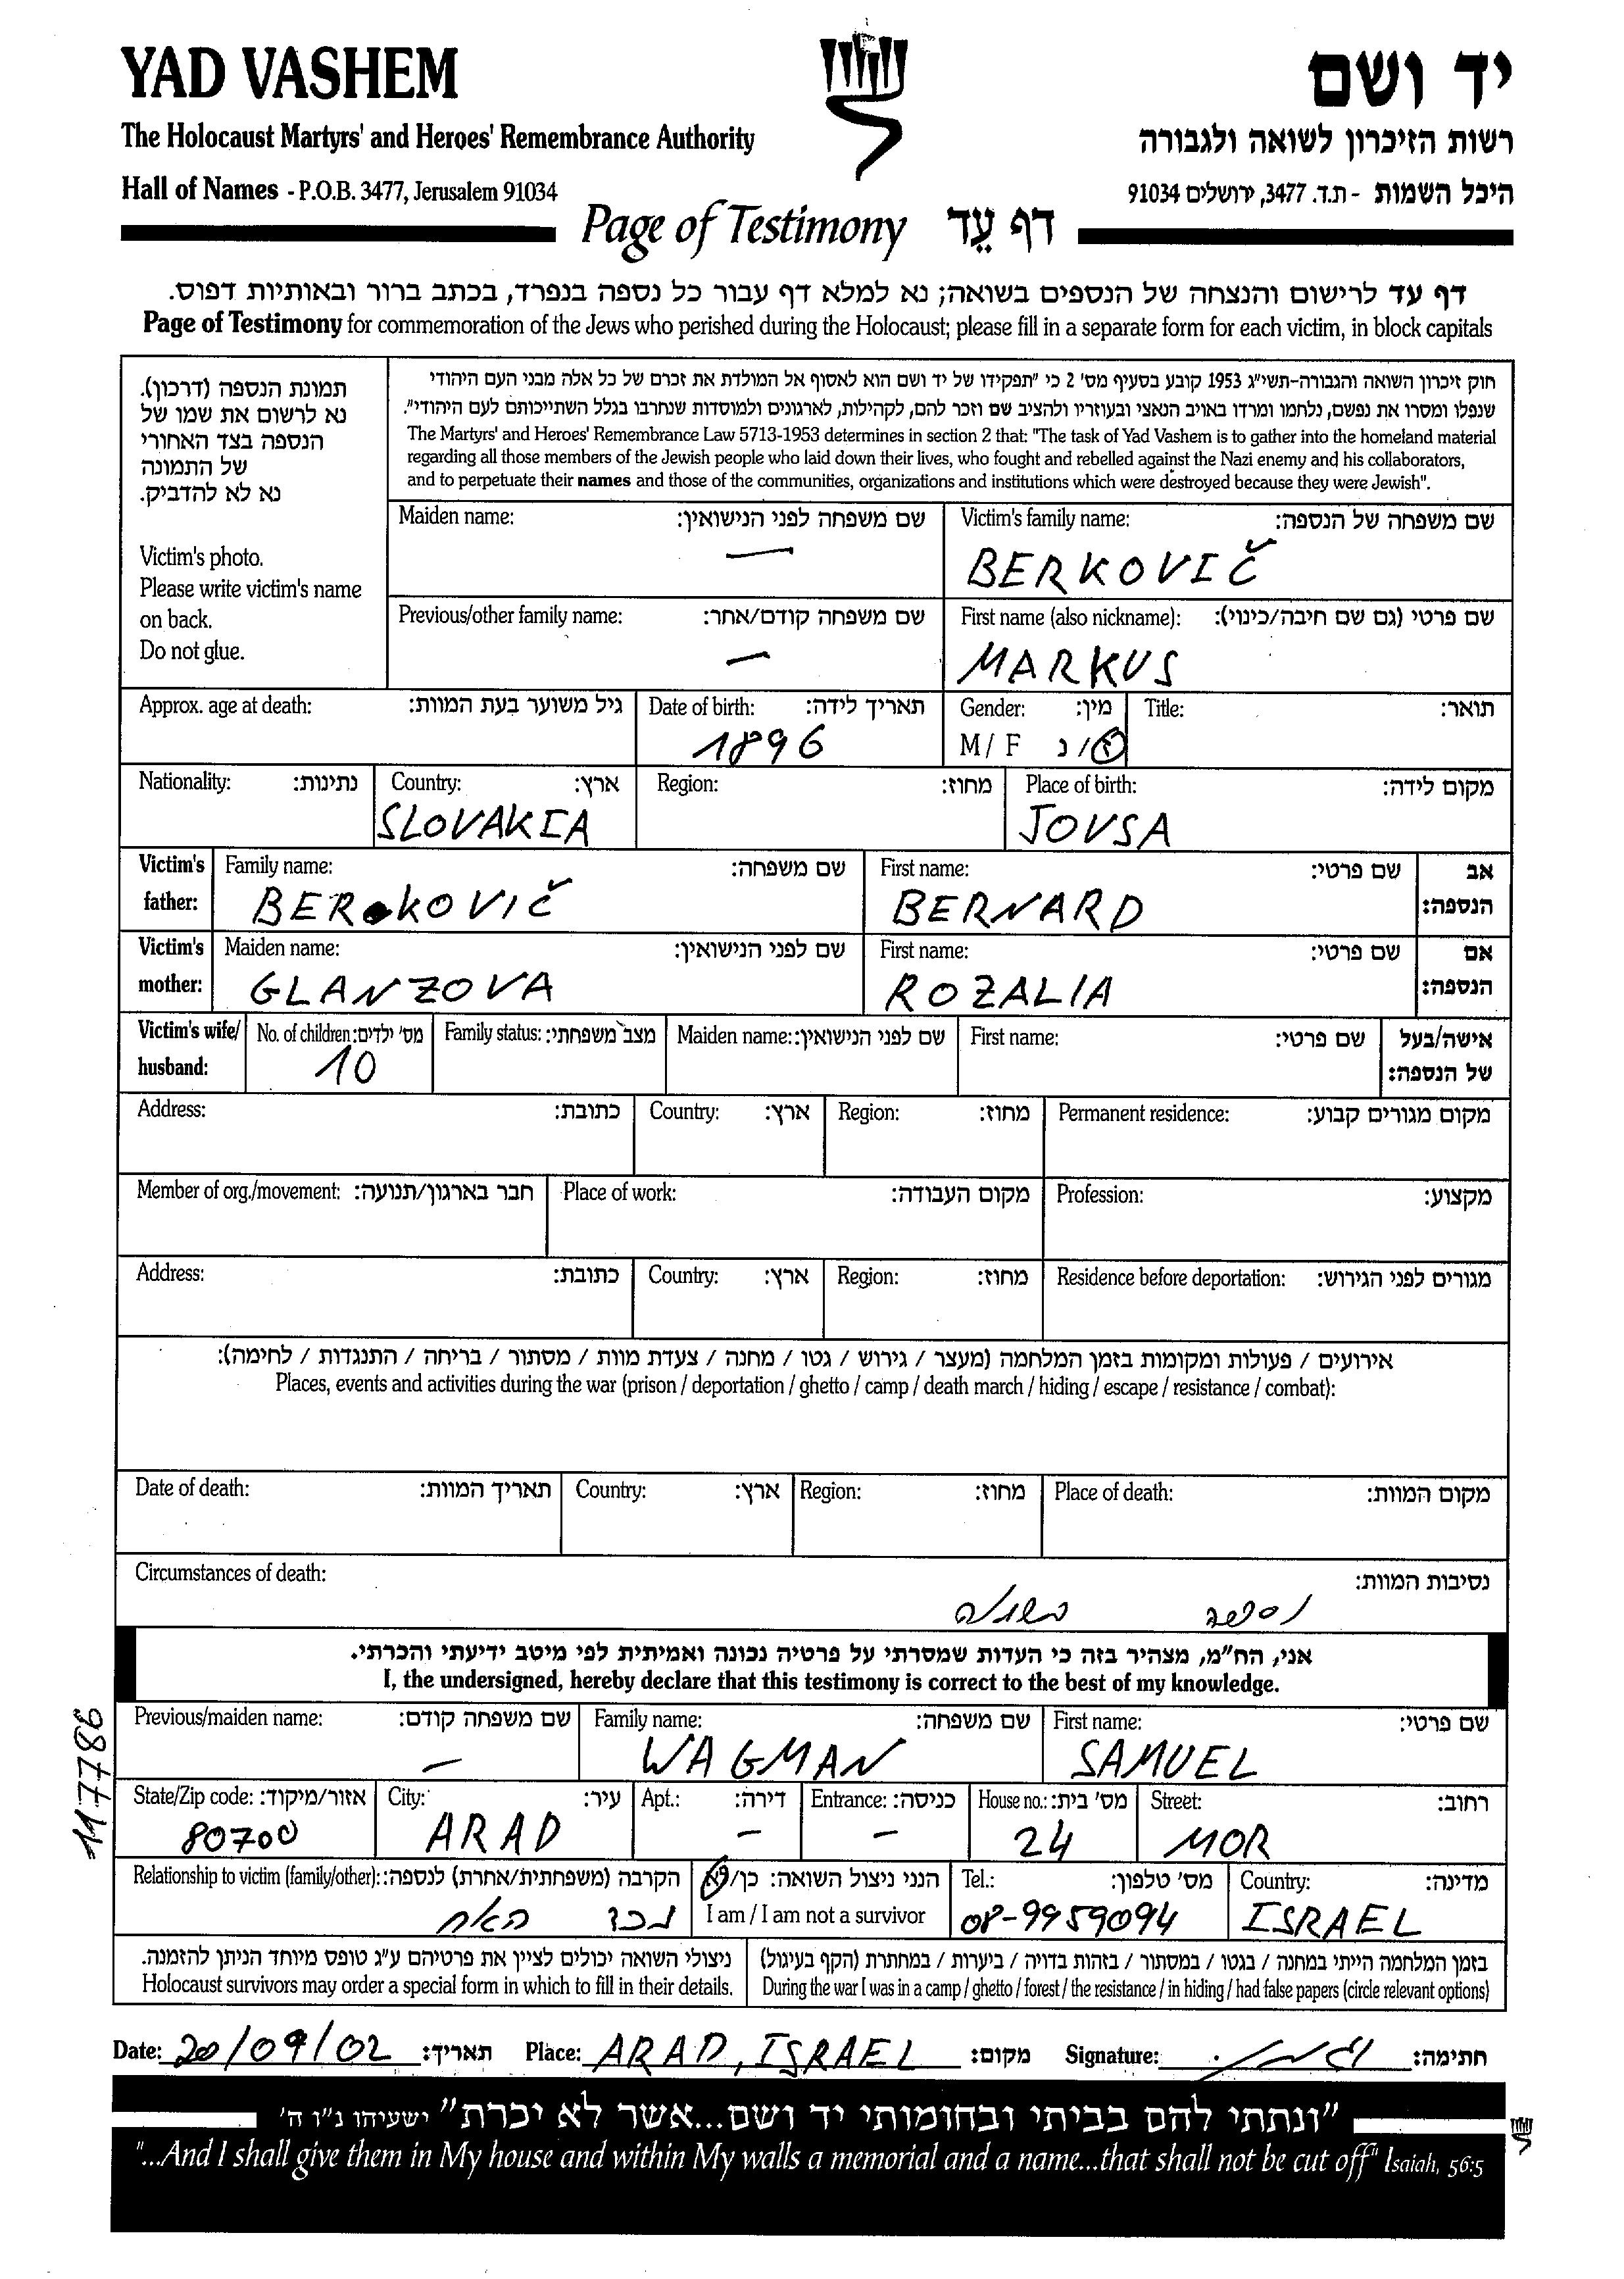 YAD VASHEM
יד ושם
The Holocaust Martyrs' and Heroes' Remembrance Authority
רשות הזיכרון לשואה ולגבורה
Hall of Names - P.O.B. 3477, Jerusalem 91034
היכל השמות - ת.ד. 3477, ירושלים 91034
Page of Testimony דף עֵד
דף עד לרישום והנצחה של הנספים בשואה; נא למלא דף עבור כל נספה בנפרד, בכתב ברור ובאותיות דפוס.
Page of Testimony for commemoration of the Jews who perished during the Holocaust; please fill in a separate form for each victim, in block capitals
תמונת הנספה (דרכון).
נא לרשום את שמו של
הנספה בצד האחורי
של התמונה
נא לא להדביק.
Victim's photo.
Please write victim's name
on back.
Do not glue.
חוק זיכרון השואה והגבורה-תשי"ג 1953 קובע בסעיף מס' 2 כי "תפקידו של יד ושם הוא לאסוף אל המולדת את זכרם של כל אלה מבני העם היהודי
שנפלו ומסרו את נפשם, נלחמו ומרדו באויב הנאצי ובעוזריו ולהציב שם וזכר להם, לקהילות, לארגונים ולמוסדות שנחרבו בגלל השתייכותם לעם היהודי".
The Martyrs' and Heroes' Remembrance Law 5713-1953 determines in section 2 that: "The task of Yad Vashem is to gather into the homeland material
regarding all those members of the Jewish people who laid down their lives, who fought and rebelled against the Nazi enemy and his collaborators,
and to perpetuate their names and those of the communities, organizations and institutions which were destroyed because they were Jewish".
Maiden name: שם משפחה לפני הנישואין:
—
Victim's family name: שם משפחה של הנספה:
BERKOVIČ
Previous/other family name: שם משפחה קודם/אחר:
—
First name (also nickname): שם פרטי (גם שם חיבה/כינוי):
MARKUS
Approx. age at death: גיל משוער בעת המוות:
Date of birth: תאריך לידה:
1896
Gender: מין:
M / F ז/נ
Title: תואר:
Nationality: נתינות:
Country: ארץ:
SLOVAKIA
Region: מחוז:
Place of birth: מקום לידה:
JOVSA
Victim's father:
Family name: שם משפחה:
BERKOVIČ
First name: שם פרטי:
BERNARD
אב הנספה:
Victim's mother:
Maiden name: שם לפני הנישואין:
GLANZOVA
First name: שם פרטי:
ROZALIA
אם הנספה:
Victim's wife/ husband:
No. of children: מס' ילדים:
10
Family status: מצב משפחתי:
Maiden name: שם לפני הנישואין:
First name: שם פרטי:
אישה/בעל של הנספה:
Address: כתובת:
Country: ארץ:
Region: מחוז:
Permanent residence: מקום מגורים קבוע:
Member of org./movement: חבר בארגון/תנועה:
Place of work: מקום העבודה:
Profession: מקצוע:
Address: כתובת:
Country: ארץ:
Region: מחוז:
Residence before deportation: מגורים לפני הגירוש:
אירועים / פעולות ומקומות בזמן המלחמה (מעצר / גירוש / גטו / מחנה / צעדת מוות / מסתור / בריחה / התנגדות / לחימה):
Places, events and activities during the war (prison / deportation / ghetto / camp / death march / hiding / escape / resistance / combat):
Date of death: תאריך המוות:
Country: ארץ:
Region: מחוז:
Place of death: מקום המוות:
Circumstances of death: נסיבות המוות:
נספה בשואה
אני, הח"מ, מצהיר בזה כי העדות שמסרתי על פרטיה נכונה ואמיתית לפי מיטב ידיעתי והכרתי.
I, the undersigned, hereby declare that this testimony is correct to the best of my knowledge.
Previous/maiden name: שם משפחה קודם:
—
Family name: שם משפחה:
WAGMAN
First name: שם פרטי:
SAMUEL
117786
State/Zip code: אזור/מיקוד:
80700
City: עיר:
ARAD
Apt.: דירה:
—
Entrance: כניסה:
—
House no.: מס' בית:
24
Street: רחוב:
MOR
Relationship to victim (family/other): הקרבה (משפחתית/אחרת) לנספה:
נכד האח
הנני ניצול השואה: כן/לא
I am / I am not a survivor
Tel.: מס' טלפון:
08-9959094
Country: מדינה:
ISRAEL
ניצולי השואה יכולים לציין את פרטיהם ע"ג טופס מיוחד הניתן להזמנה.
Holocaust survivors may order a special form in which to fill in their details.
בזמן המלחמה הייתי במחנה / בגטו / במסתור / בזהות בדויה / ביערות / במחתרת (הקף בעיגול)
During the war I was in a camp / ghetto / forest / the resistance / in hiding / had false papers (circle relevant options)
Date: 20/09/02 תאריך: Place: ARAD, ISRAEL מקום: Signature: חתימה:
"ונתתי להם בביתי ובחומותי יד ושם...אשר לא יכרת" ישעיהו נ"ו ה'
"...And I shall give them in My house and within My walls a memorial and a name...that shall not be cut off" Isaiah, 56:5